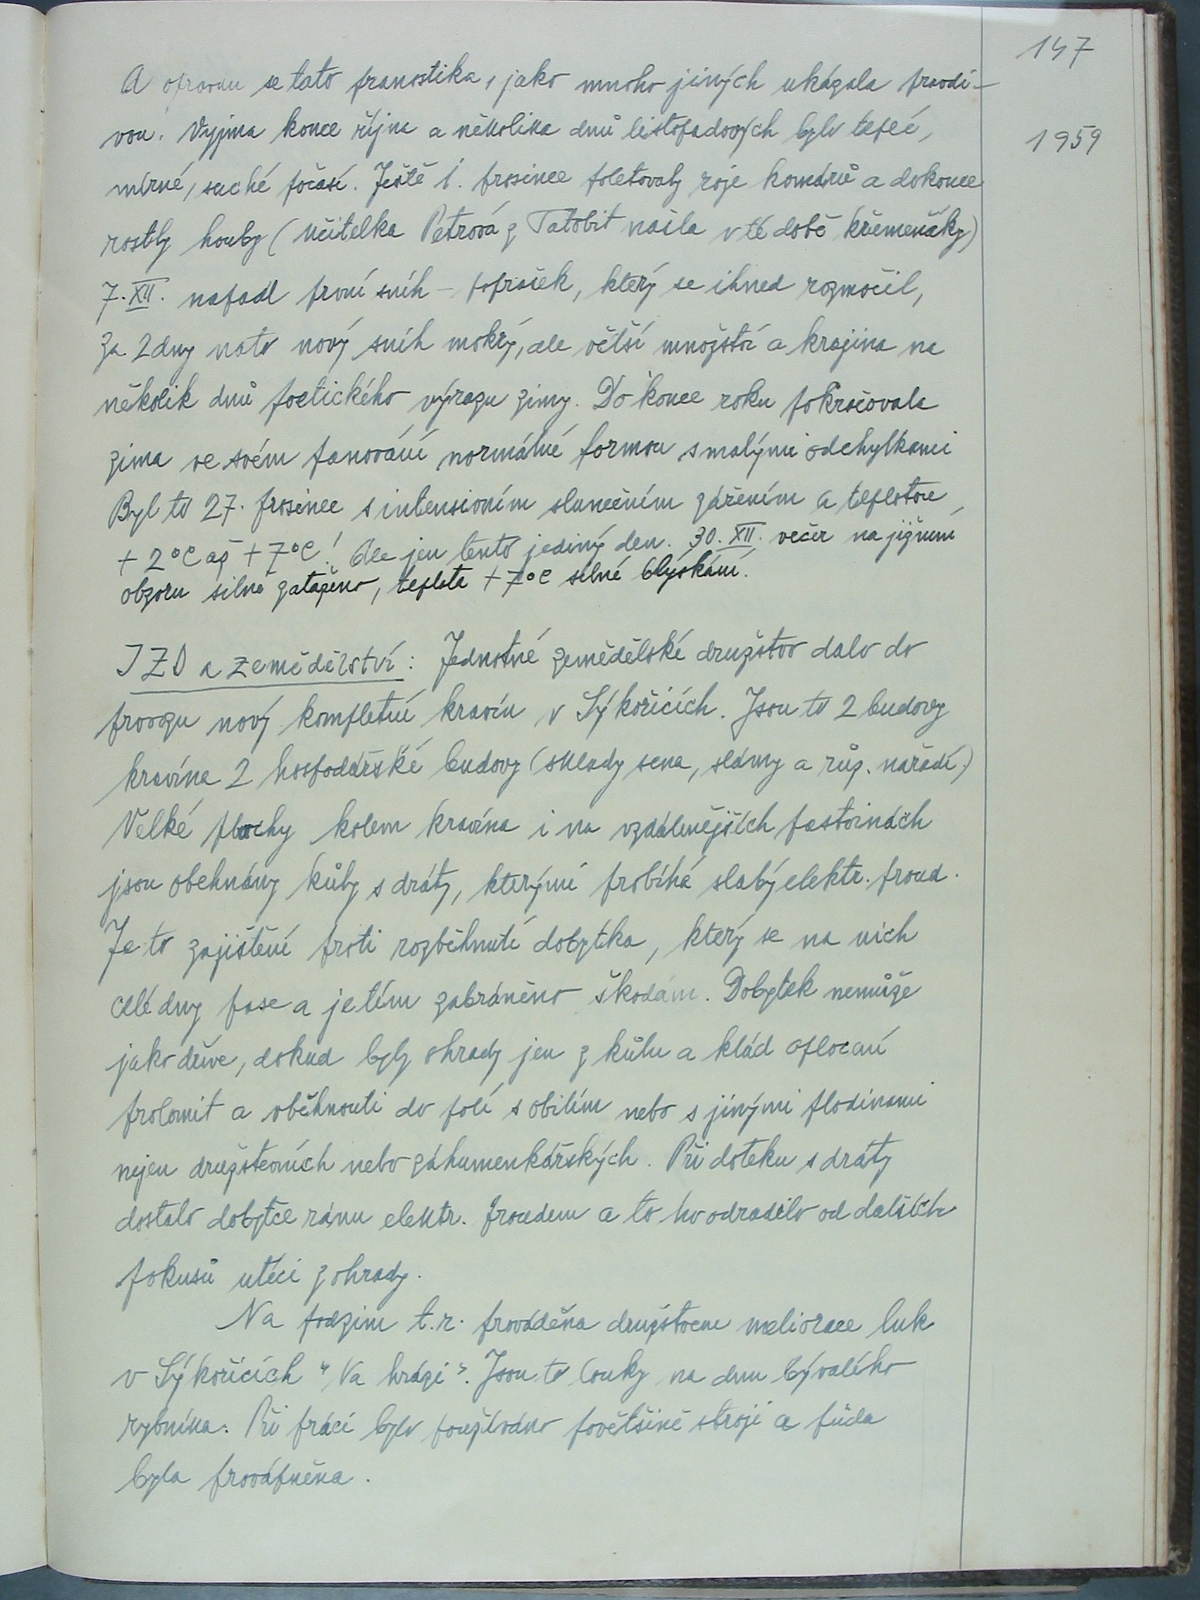 147
A opravdu se tato pranostika, jako mnoho jiných ukázala pravdi-
vou. Vyjma konce října a několika dnů listopadových bylo teplé,
1959
mírné, suché počasí. Ještě 1. prosince poletovaly roje komárů a dokonce
rostly houby (učitelka Petrová z Tatobit našla v té době křemenáky)
7. XII. napadl první sníh - poprašek, který se ihned rozmočil,
za 2 dny nato nový sníh mokrý, ale větší množství a krajina na
několik dnů poetického výrazu zimy. Do konce roku pokračovala
zima ve svém panování normální formou s malými odchylkami
Byl to 27. prosinec s intensivním slunečním zářením a teplotou
+ 2°C až + 7°C! Ale jen tento jediný den. 30. XII. večer na jižním
obzoru silně zataženo, teplota + 7°C silné blýskání.
JZD a zemědělství: Jednotné zemědělské družstvo dalo do
provozu nový kompletní kravín v Sýkořicích. Jsou to 2 budovy
kravína 2 hospodářské budovy (sklady sena, slámy a růz. nářadí)
Velké plochy kolem kravína i na vzdálenějších pastvinách
jsou obehnány kůly s dráty, kterými probíhá slabý elektr. proud.
Je to zajištění proti rozběhnutí dobytka, který se na nich
celé dny pase a je tím zabráněno škodám. Dobytek nemůže
jako dříve, dokud byly ohrady jen z kůlů a klád oplocení
prolomit a oběhnouti do polí s obilím nebo s jinými plodinami
nejen družstevních nebo záhumenkářských. Při doteku s dráty
dostalo dobytče ránu elektr. proudem a to ho odradilo od dalších
pokusů utéci z ohrady.
Na podzim t.r. prováděna družstvem meliorace luk
v Sýkořicích "Na hrázi". Jsou to louky na dnu bývalého
rybníka. Při práci bylo používáno povětšině strojů a půda
byla provápněna.